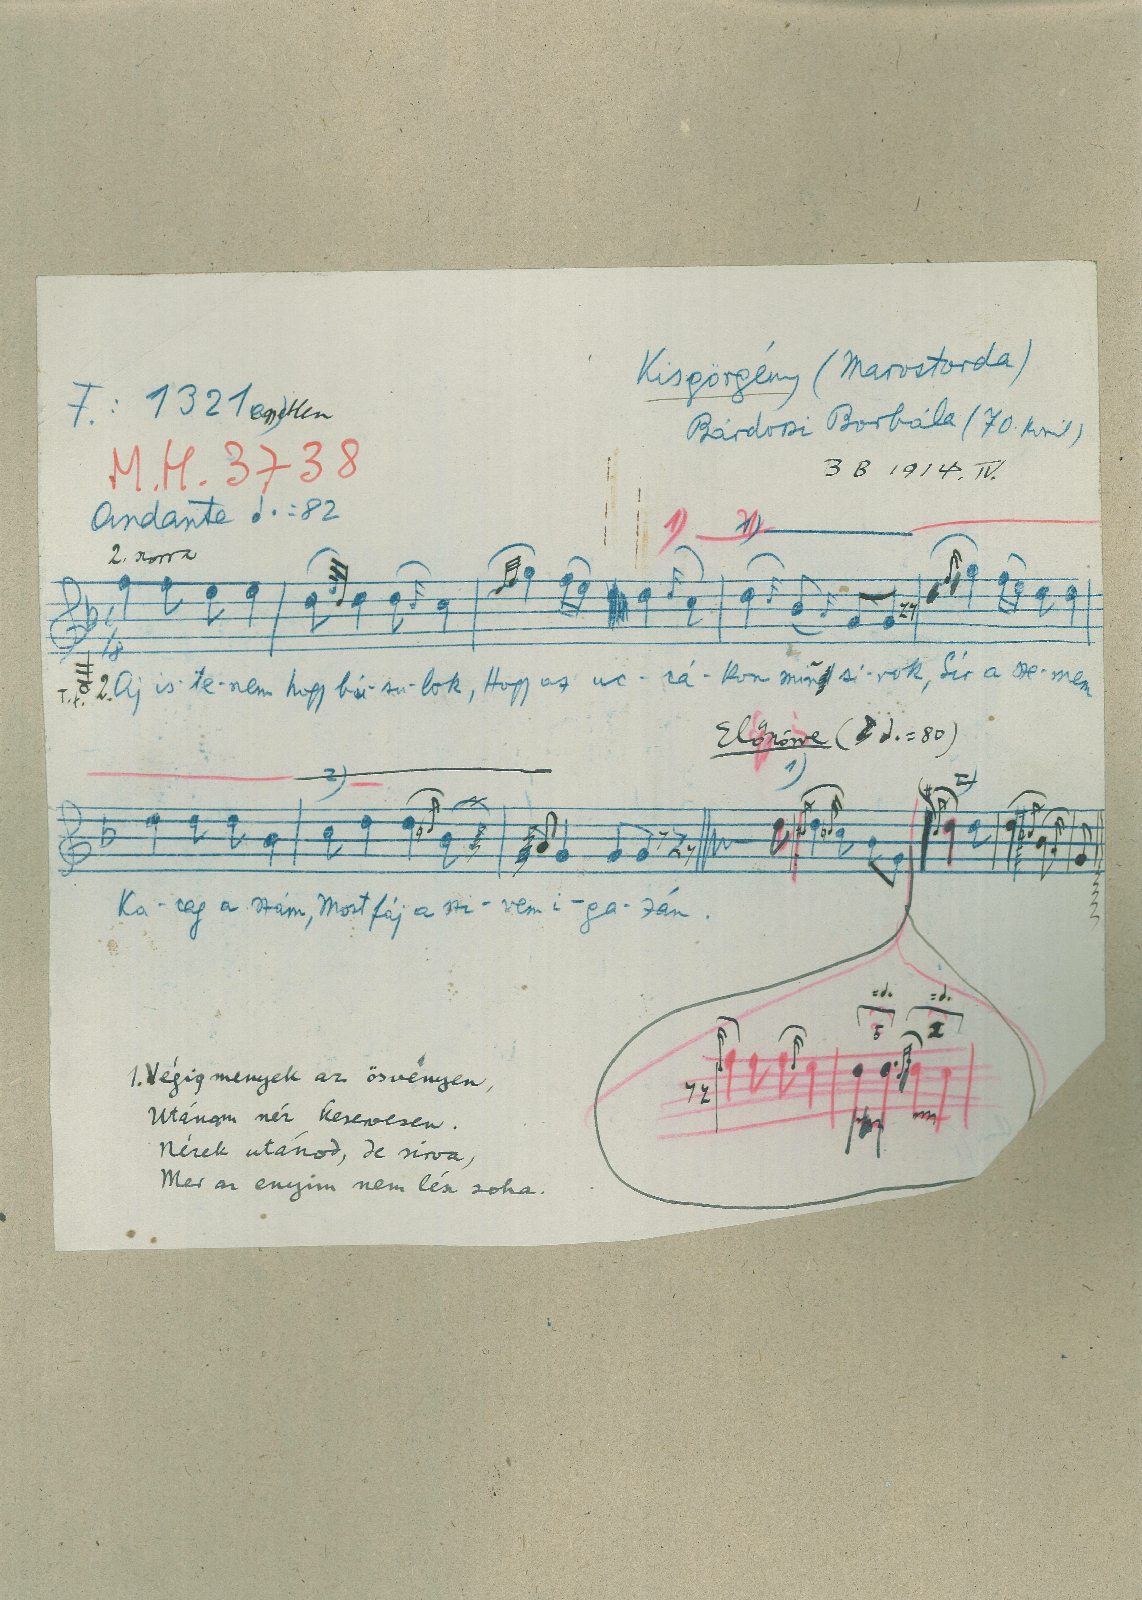 F.: 1321
M.H. 3738
Andante ♩. = 82
Kisgörgény (Marostorda)
Bárdosi Borbála (70
B B 1914. IV.
2.
1) 1)
6/8
T.f. 2. Aj is-te-nem hogy bú-su-lok, Hogy az uc-cá-kon si-rok, Sír a sze-mem
Előzőre (♩. = 80)
2) 1) 2)
Ka-cag a szám, Most fáj a szi-vem i-ga-zán.
=♩. =♩.
5 2
1. Végig menyek az ösvényen,
Utánam néz keservesen.
Nézek utánod, de sirva,
Mer az enyim nem lész soha.